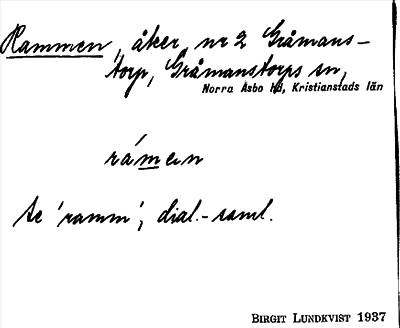 Rammen, åker nr 2 Gråmans-
torp, Gråmanstorps sn,
Norra Åsbo hd, Kristianstads län
rámen
Se 'ramm', dial.-saml.
BIRGIT LUNDKVIST 1937